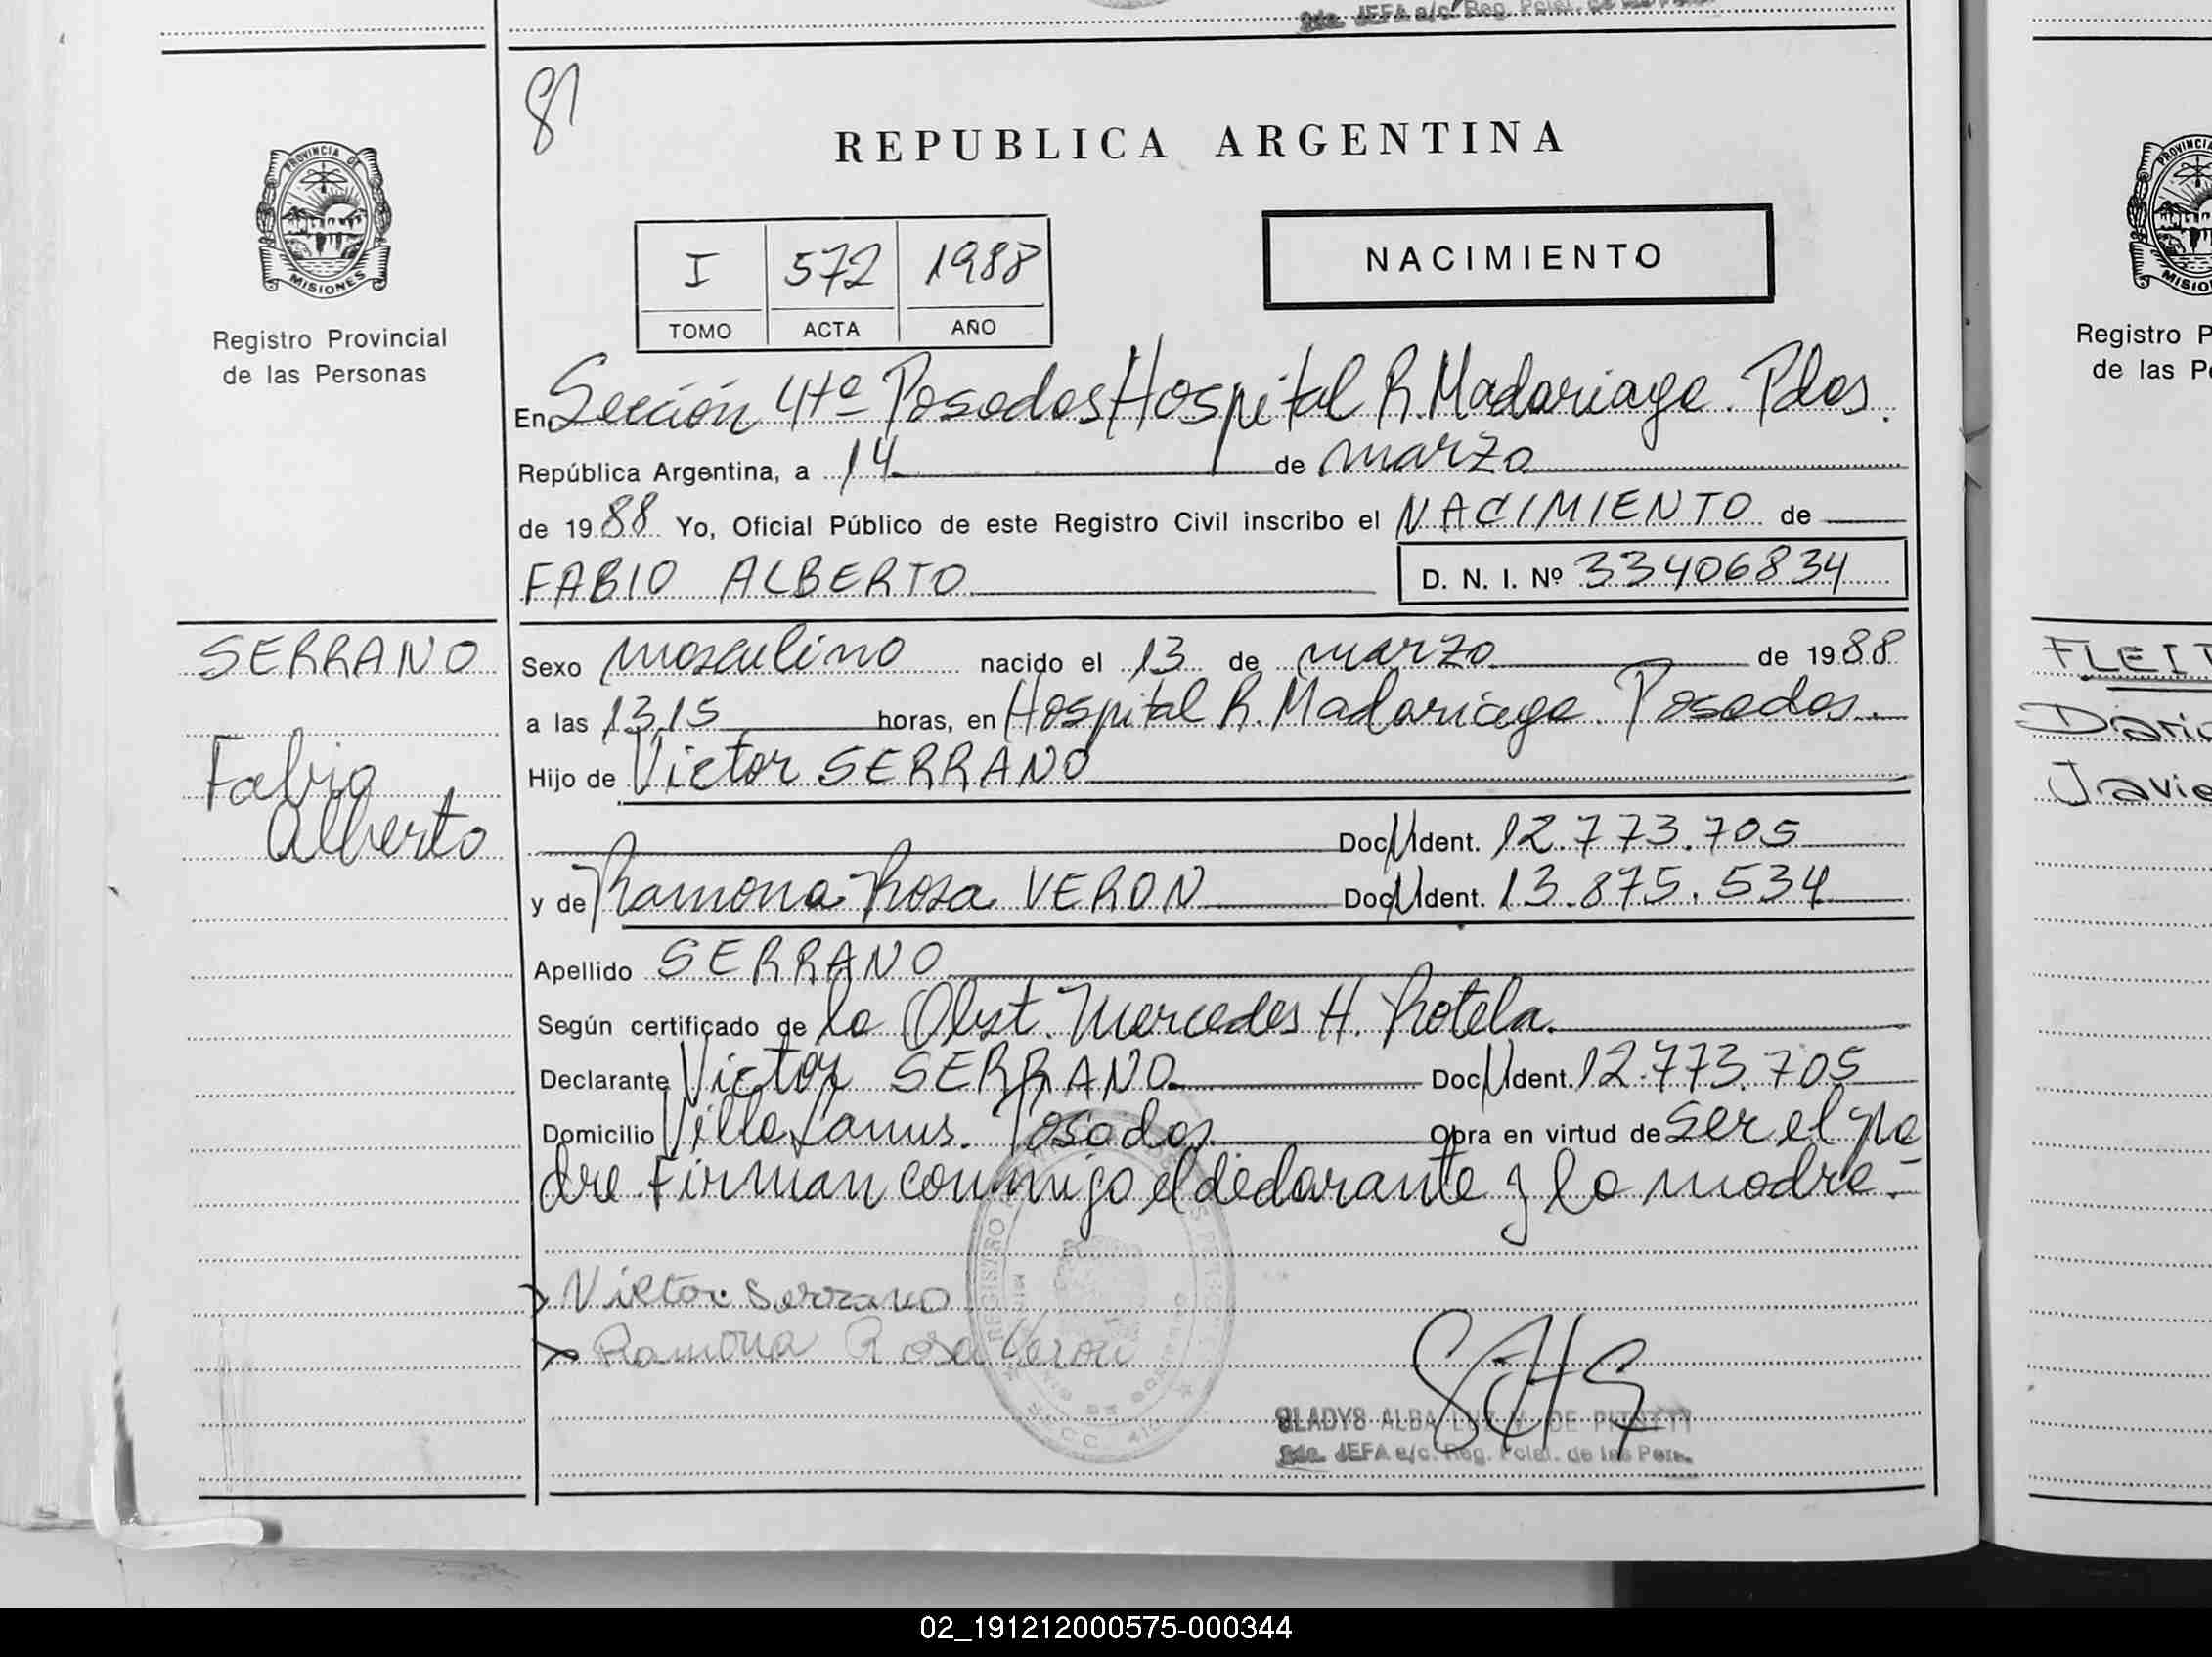 2da. JEFA a/c. Reg. Pcial. de las Pers.
81
REPUBLICA ARGENTINA
PROVINCIA DE
MISIONES
Registro Provincial
de las Personas
I 572 1988
TOMO ACTA AÑO
NACIMIENTO
En Sección 4ta Posadas Hospital R. Madariaga. Pdas.
República Argentina, a 14 de marzo
de 1988 Yo, Oficial Público de este Registro Civil inscribo el NACIMIENTO de
FABIO ALBERTO D. N. I. Nº 33406834
SERRANO
Fabio
Alberto
Sexo masculino nacido el 13 de marzo de 1988
a las 13,15 horas, en Hospital R. Madariaga. Posadas.
Hijo de Victor SERRANO
Doc. Ident. 12.773.705
y de Ramona Rosa VERON Doc. Ident. 13.875.534
Apellido SERRANO
Según certificado de la Obst. Mercedes H. Rotela.
Declarante Victor SERRANO Doc. Ident. 12.773.705
Domicilio Villa Lanus. Posadas Obra en virtud de ser el pa
dre. Firman conmigo el declarante y la madre.-
Victor Serrano
Ramona Rosa Veron
GLADYS ALBA LUZ V. DE
2da. JEFA a/c. Reg. Pcial. de las Pers.
PROVINCIA
MISIO
Registro P
de las Pe
FLEIT
Dario
Javie
02_191212000575-000344